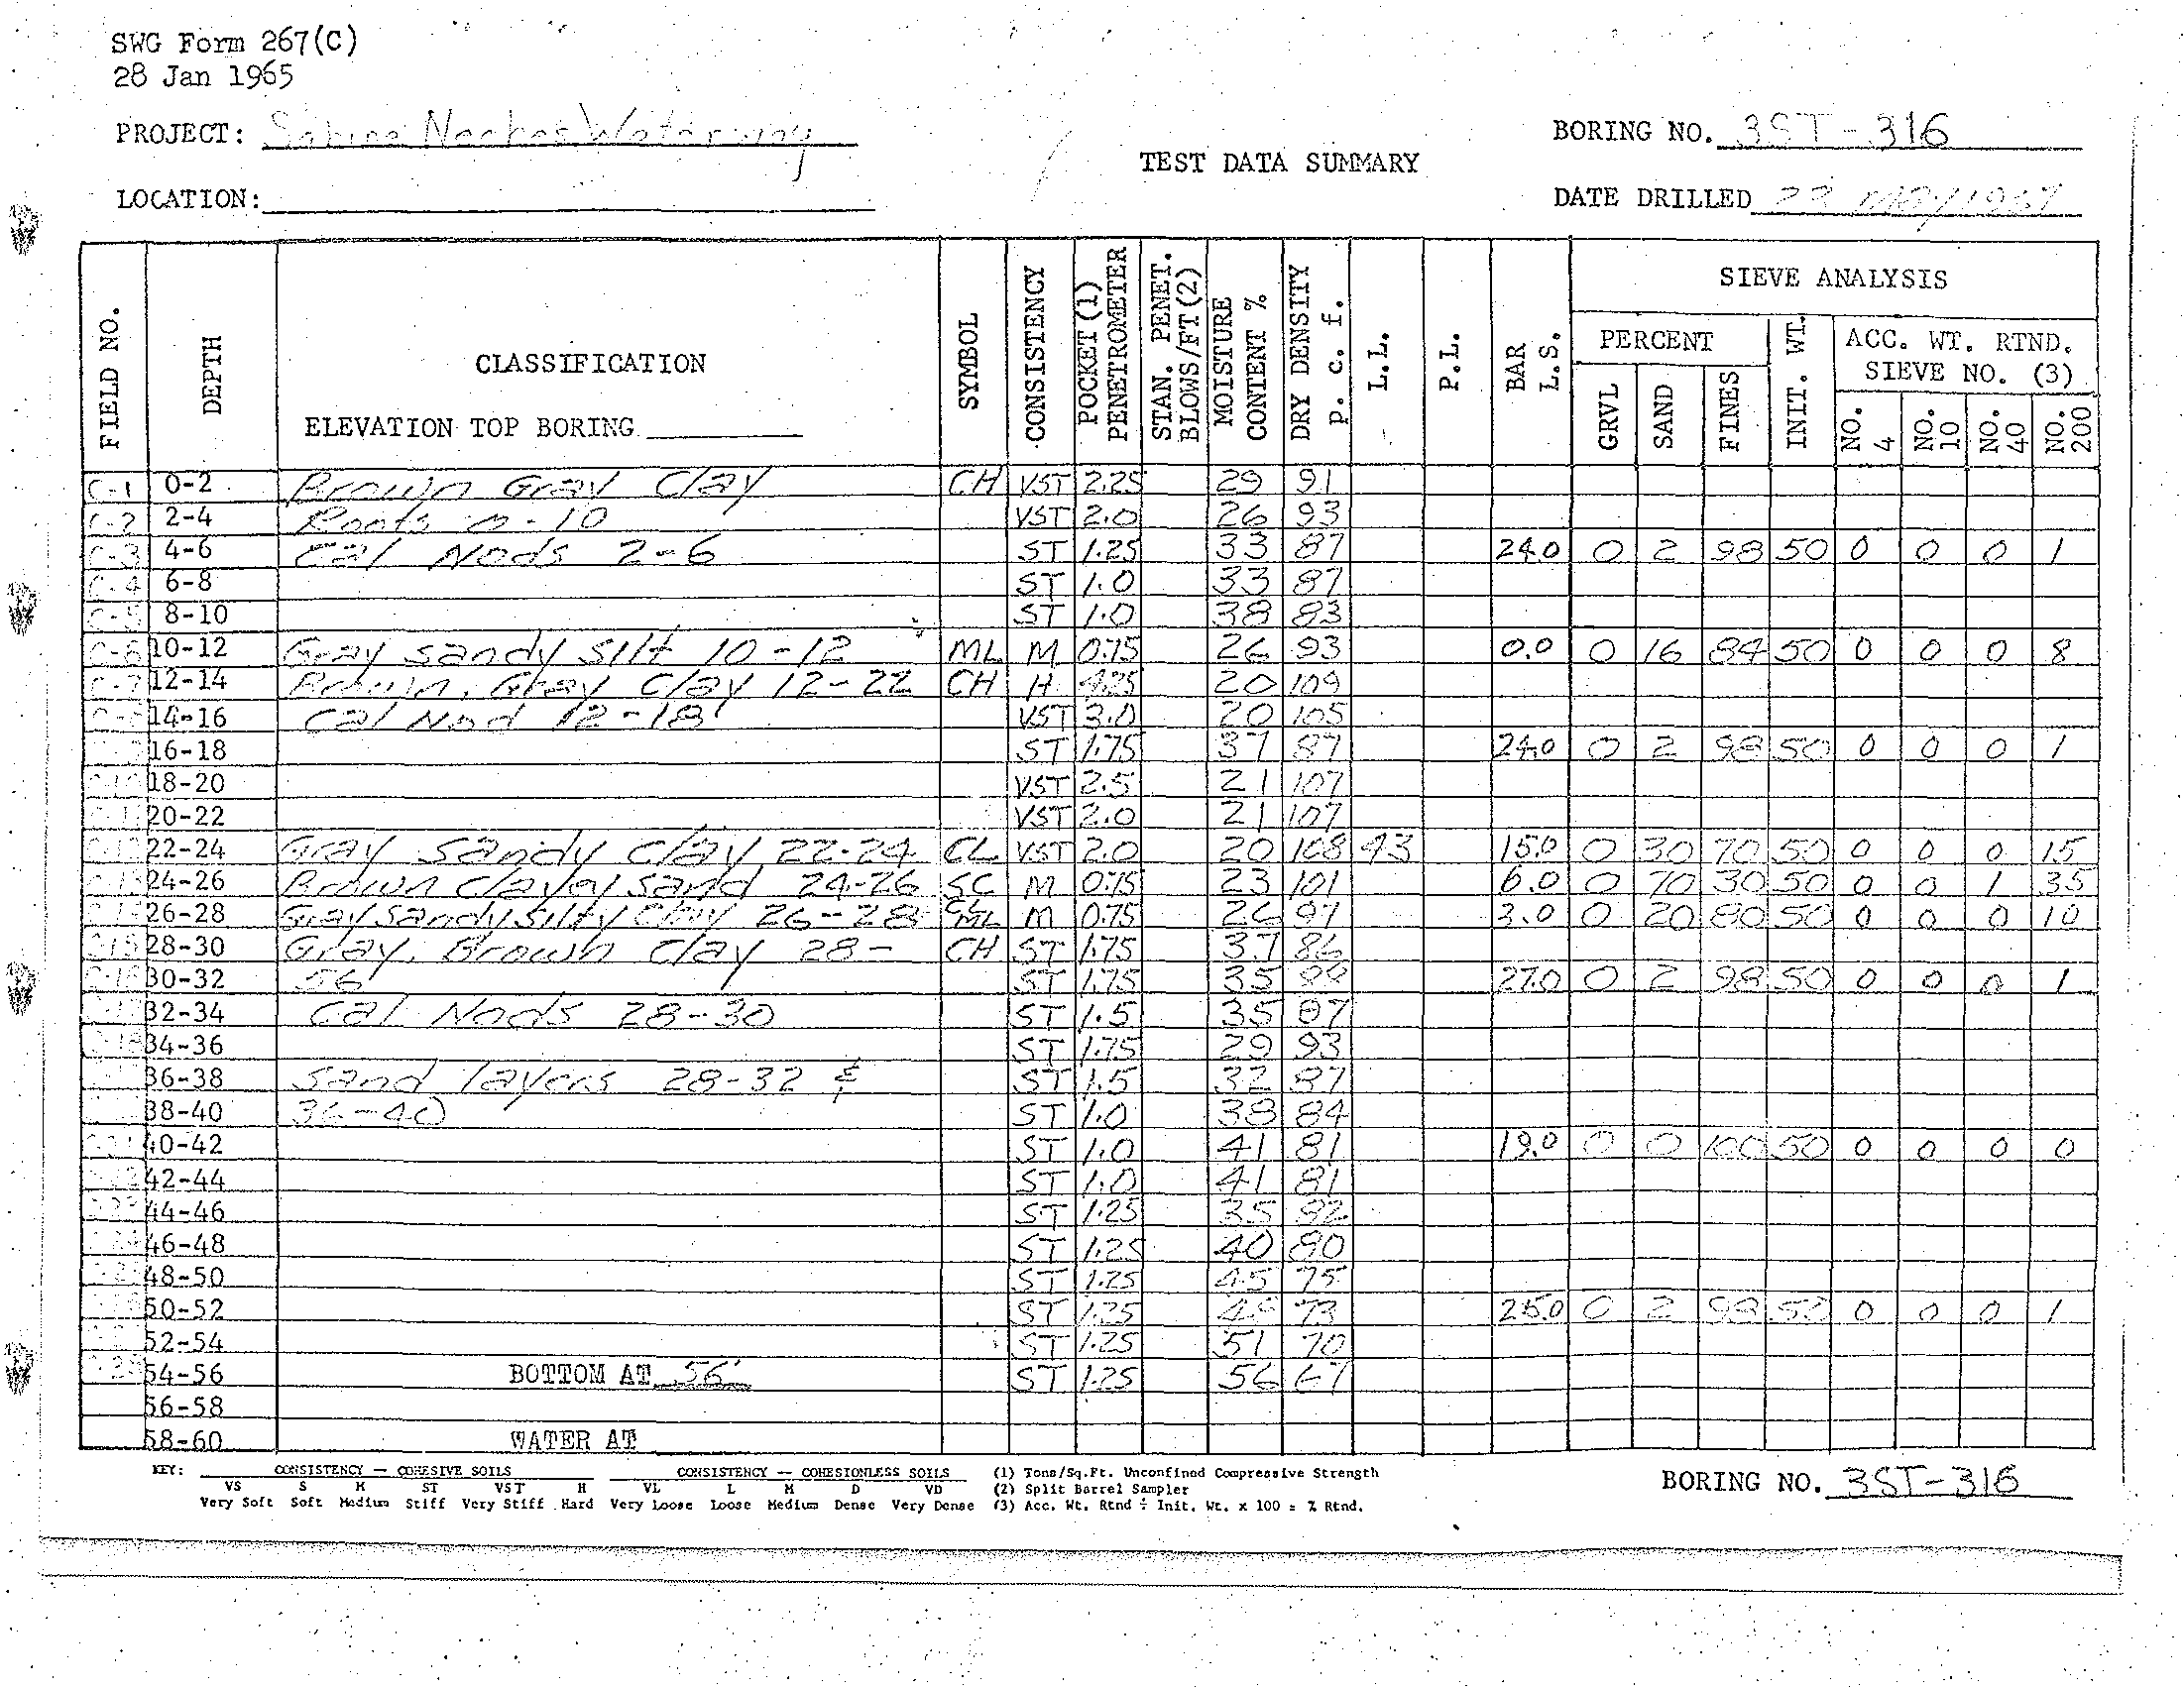 SWG Form 267(C)
28 Jan 1965
PROJECT: Sabine Neches Waterway
BORING NO. 3ST-316
TEST DATA SUMMARY
LOCATION:
DATE DRILLED MAY 1967
FIELD NO. DEPTH CLASSIFICATION ELEVATION TOP BORING SYMBOL CONSISTENCY POCKET (1) PENETROMETER STAN. PENET. BLOWS/FT (2) MOISTURE CONTENT % DRY DENSITY p. c. f. L.L. P.L. BAR L.S. SIEVE ANALYSIS
PERCENT GRVL SAND FINES INIT. WT. ACC. WT. RTND. SIEVE NO. (3) NO. 4 NO. 10 NO. 40 NO. 200
C-1 0-2 Brown Gray Clay CH VST 2.25 29 91
C-2 2-4 Roots 0-10 VST 2.0 26 93
C-3 4-6 Cal Nods 2-6 ST 1.25 33 87 24.0 0 2 98 50 0 0 0 1
C-4 6-8 ST 1.0 33 87
C-5 8-10 ST 1.0 38 83
C-6 10-12 Gray sandy silt 10-12 ML M 0.75 26 93 0.0 0 16 84 50 0 0 0 8
C-7 12-14 Brown, Gray Clay 12-22 CH H 4.25 20 109
14-16 Cal Nod 12-18 VST 3.0 20 105
16-18 ST 1.75 37 87 24.0 0 2 98 50 0 0 0 1
18-20 VST 2.5 21 107
20-22 VST 2.0 21 107
22-24 Gray Sandy Clay 22-24 CL VST 2.0 20 108 43 15.0 0 30 70 50 0 0 0 15
24-26 Brown Clayey Sand 24-26 SC M 0.75 23 101 6.0 0 70 30 50 0 0 1 35
26-28 Gray Sandy Silty Clay 26-28 CL ML M 0.75 26 97 3.0 0 20 80 50 0 0 0 10
28-30 Gray, Brown Clay 28- CH ST 1.75 37 86
30-32 56 ST 1.75 35 27.0 0 2 98 50 0 0 0 1
32-34 Cal Nods 28-30 ST 1.5 35 87
34-36 ST 1.75 29 93
36-38 Sand layers 28-32 & ST 1.5 32 87
38-40 36-40 ST 1.0 38 84
40-42 ST 1.0 41 81 19.0 0 0 100 50 0 0 0 0
42-44 ST 1.0 41 81
44-46 ST 1.25 35 82
46-48 ST 1.25 40 80
48-50 ST 1.25 45 75
50-52 ST 1.25 73 25.0 0 2 98 50 0 0 0 1
52-54 ST 1.25 51 70
54-56 BOTTOM AT 56' ST 1.25 56 67
56-58
58-60 WATER AT
KEY: CONSISTENCY — COHESIVE SOILS CONSISTENCY -- COHESIONLESS SOILS (1) Tons/Sq.Ft. Unconfined Compressive Strength
VS S M ST VST H VL L M D VD (2) Split Barrel Sampler
Very Soft Soft Medium Stiff Very Stiff Hard Very Loose Loose Medium Dense Very Dense (3) Acc. Wt. Rtnd ÷ Init. Wt. x 100 = % Rtnd.
BORING NO. 3ST-316